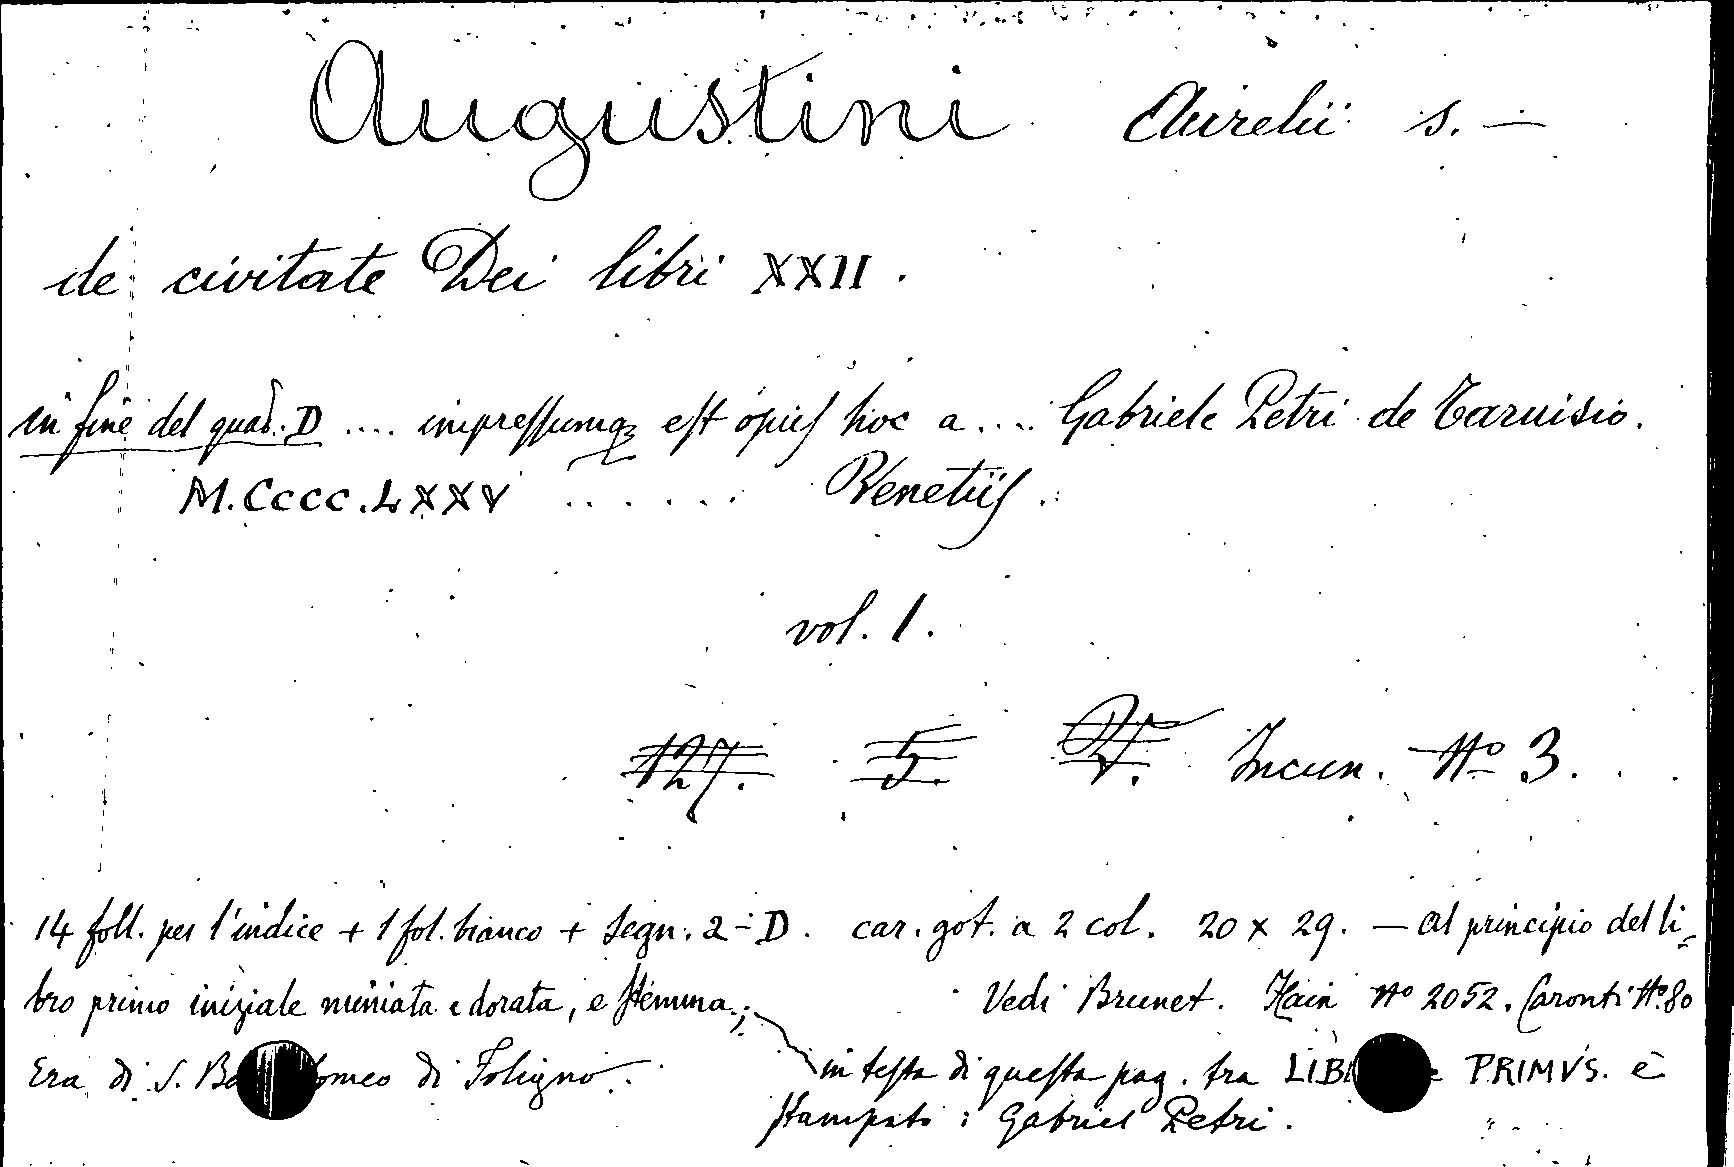 Augustini Aurelii s. —
de civitate Dei libri XXII.
in fine del quad. D .... impressumq; est opus hoc a .... Gabriele Petri de Tarvisio.
M.CCCC.LXXV ...... Venetiis.
vol. 1.
127. 5. V. Incun. Nº 3.
14 foll. per l'indice + 1 fol. bianco + segn. 2 - D. car. got. a 2 col. 20 x 29. — al principio del li-
bro primo iniziale miniata e dorata, e stemma; Vedi Brunet. Hain Nº 2052. Caronti Nº 80
Era di S. di Foligno. in testa di questa pag. tra PRIMVS. è
stampato : Gabriel Petri.